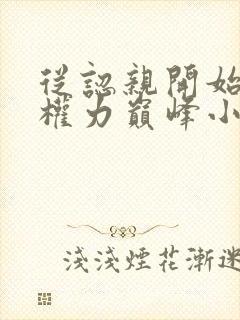 從認親開始
權力巔峰小
淺淺煙花漸迷